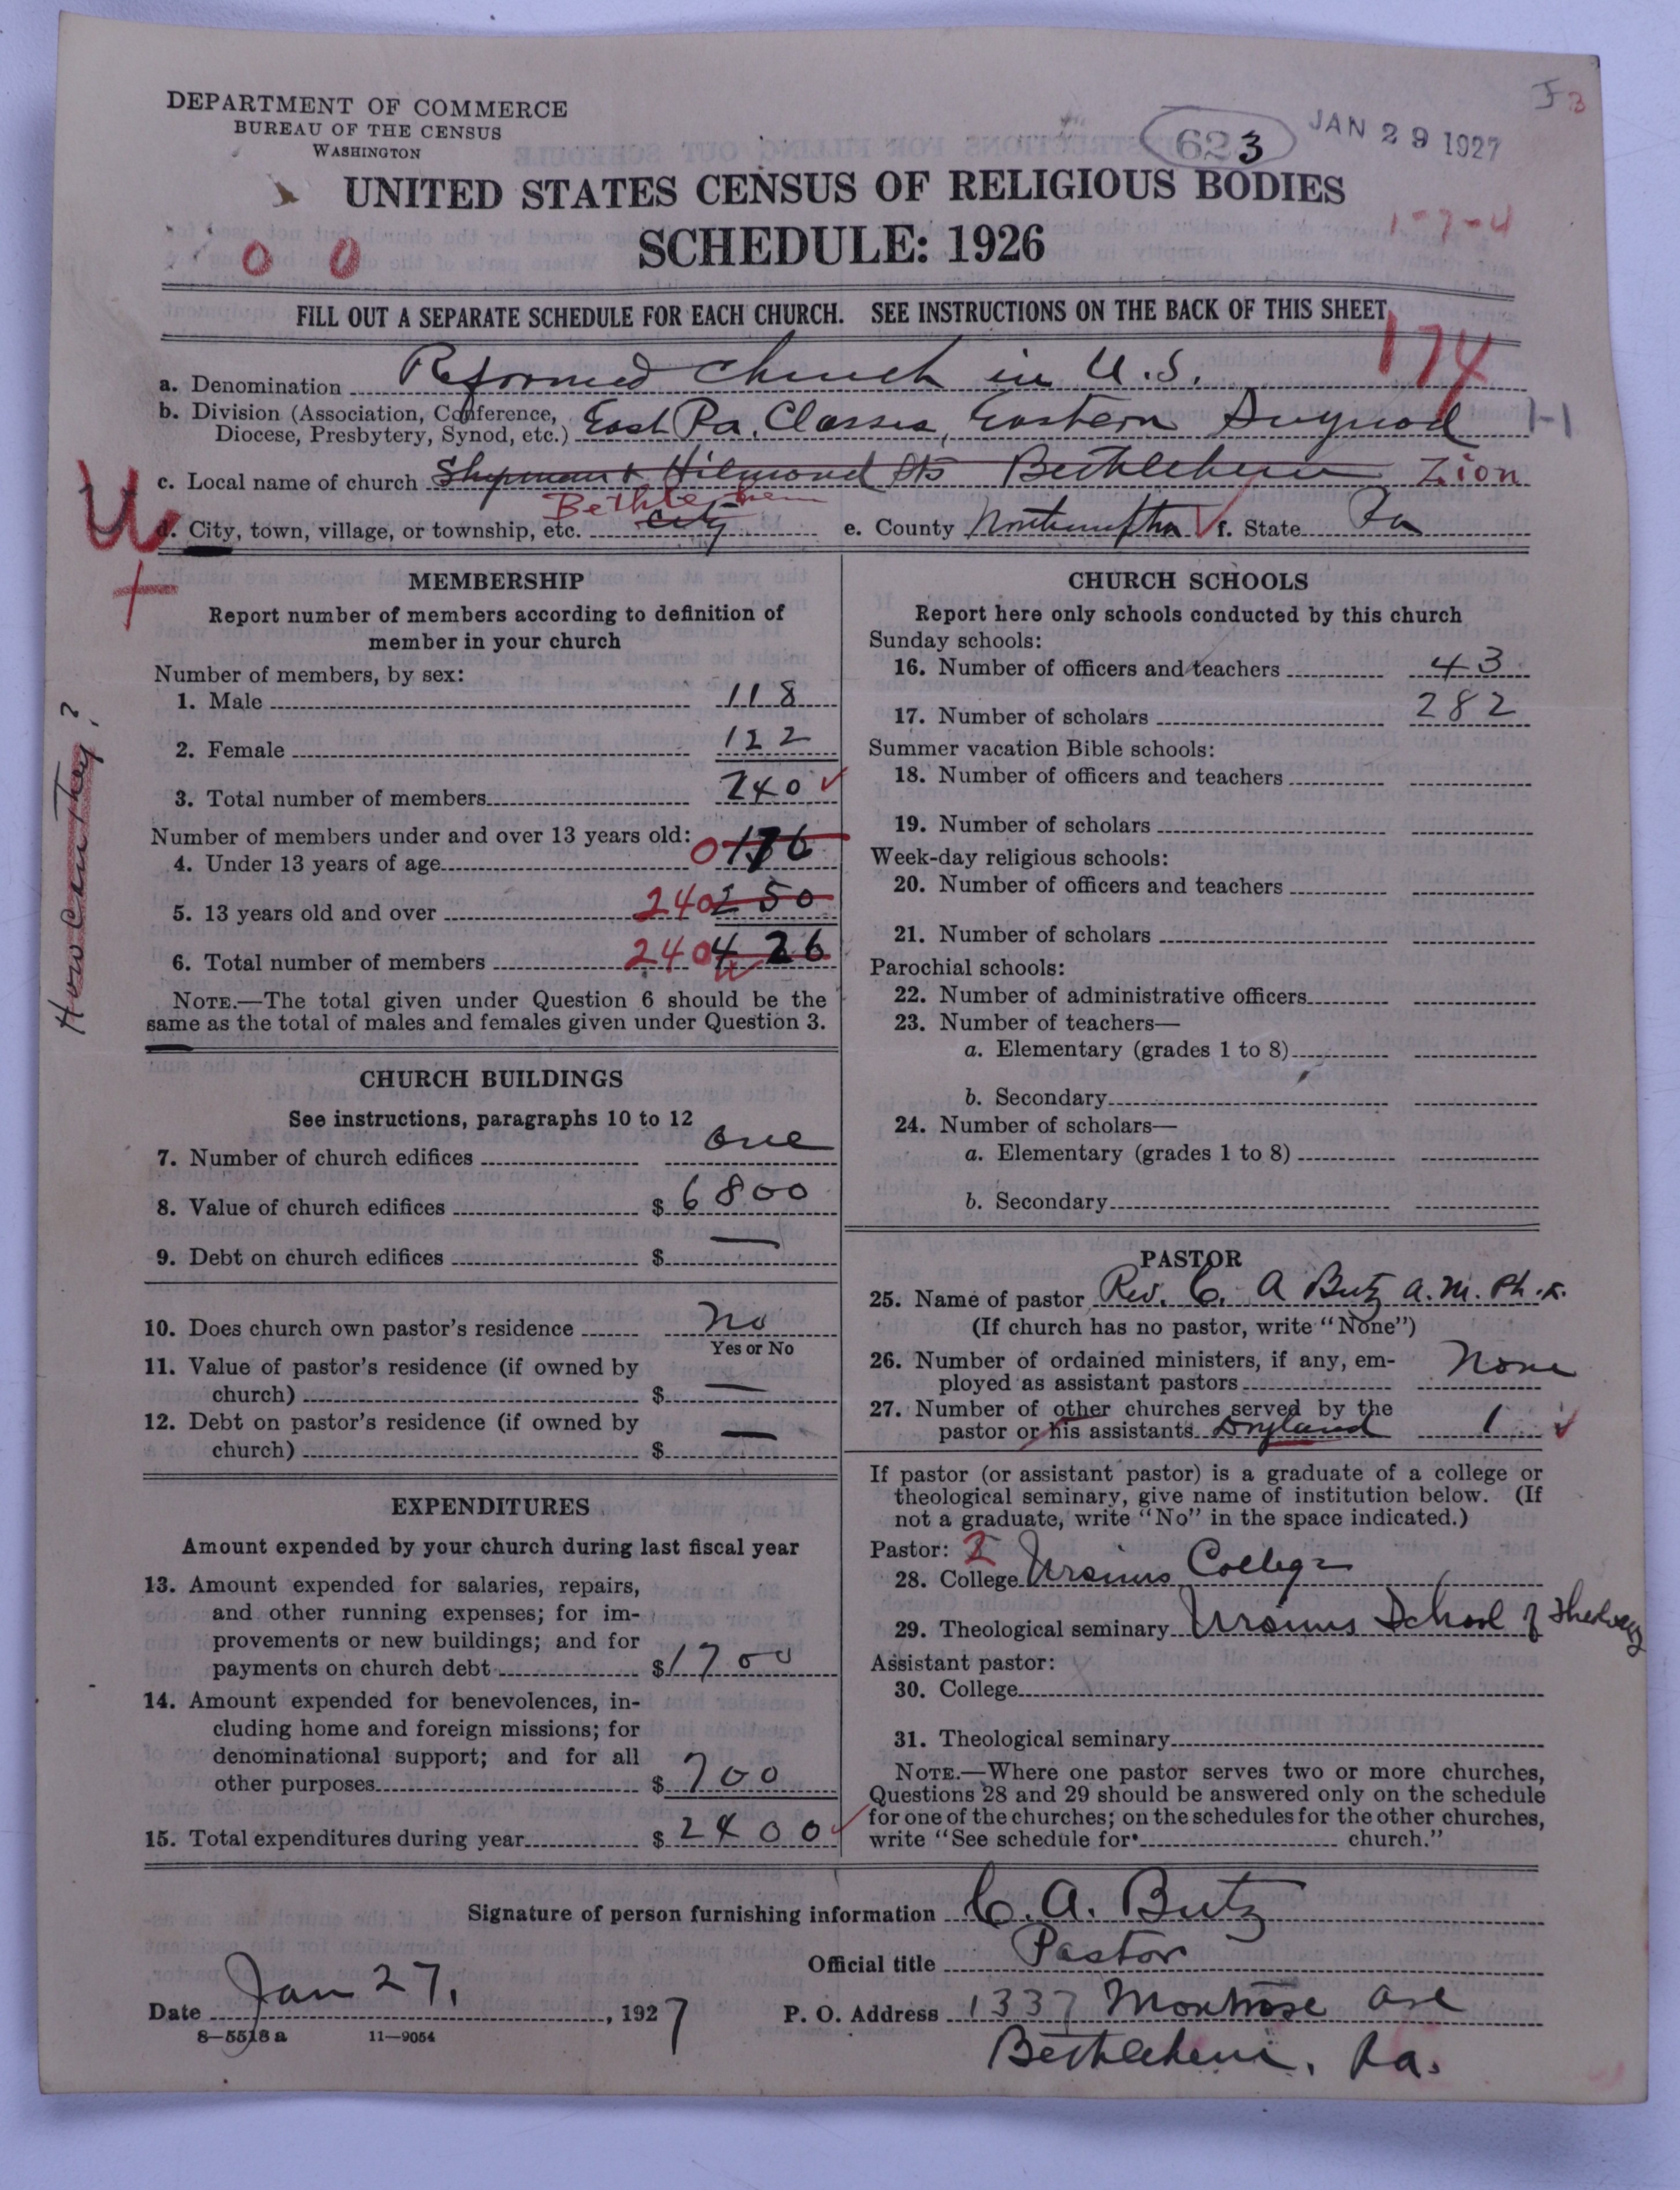 DEPARTMENT OF COMMERCE
BUREAU OF THE CENSUS
WASHINGTON
623
JAN 29 1927
J3
UNITED STATES CENSUS OF RELIGIOUS BODIES
SCHEDULE: 1926
1-7-4
0 0
FILL OUT A SEPARATE SCHEDULE FOR EACH CHURCH. SEE INSTRUCTIONS ON THE BACK OF THIS SHEET
174
a. Denomination Reformed Church in U.S.
b. Division (Association, Conference, Diocese, Presbytery, Synod, etc.) East Pa. Classes, Eastern Synod
1-1
c. Local name of church Hilmond Sts Bethlehem Zion
d. City, town, village, or township, etc. City Bethlehem e. County Northampton f. State Pa
How can they?
MEMBERSHIP
Report number of members according to definition of
member in your church
Number of members, by sex:
1. Male 118
2. Female 122
3. Total number of members 240
Number of members under and over 13 years old:
4. Under 13 years of age 0 176
5. 13 years old and over 240 250
6. Total number of members 240 426
NOTE.—The total given under Question 6 should be the
same as the total of males and females given under Question 3.
CHURCH BUILDINGS
See instructions, paragraphs 10 to 12
7. Number of church edifices one
8. Value of church edifices $ 6800
9. Debt on church edifices $ —
10. Does church own pastor's residence No
Yes or No
11. Value of pastor's residence (if owned by
church) $ —
12. Debt on pastor's residence (if owned by
church) $ —
EXPENDITURES
Amount expended by your church during last fiscal year
13. Amount expended for salaries, repairs,
and other running expenses; for im-
provements or new buildings; and for
payments on church debt $ 1700
14. Amount expended for benevolences, in-
cluding home and foreign missions; for
denominational support; and for all
other purposes $ 700
15. Total expenditures during year $ 2400
CHURCH SCHOOLS
Report here only schools conducted by this church
Sunday schools:
16. Number of officers and teachers 43
17. Number of scholars 282
Summer vacation Bible schools:
18. Number of officers and teachers
19. Number of scholars
Week-day religious schools:
20. Number of officers and teachers
21. Number of scholars
Parochial schools:
22. Number of administrative officers
23. Number of teachers—
a. Elementary (grades 1 to 8)
b. Secondary
24. Number of scholars—
a. Elementary (grades 1 to 8)
b. Secondary
PASTOR
25. Name of pastor Rev. C. A Butz A.M. Ph.
(If church has no pastor, write "None")
26. Number of ordained ministers, if any, em-
ployed as assistant pastors None
27. Number of other churches served by the
pastor or his assistants Dryland 1
If pastor (or assistant pastor) is a graduate of a college or
theological seminary, give name of institution below. (If
not a graduate, write "No" in the space indicated.)
Pastor: 2
28. College Ursinus College
29. Theological seminary Ursinus School of Theology
Assistant pastor:
30. College
31. Theological seminary
NOTE.—Where one pastor serves two or more churches,
Questions 28 and 29 should be answered only on the schedule
for one of the churches; on the schedules for the other churches,
write "See schedule for church."
Signature of person furnishing information C. A. Butz
Official title Pastor
Date Jan 27, 1927 P. O. Address 1337 Montrose Ave
8—5518 a 11—9054
Bethlehem, Pa.